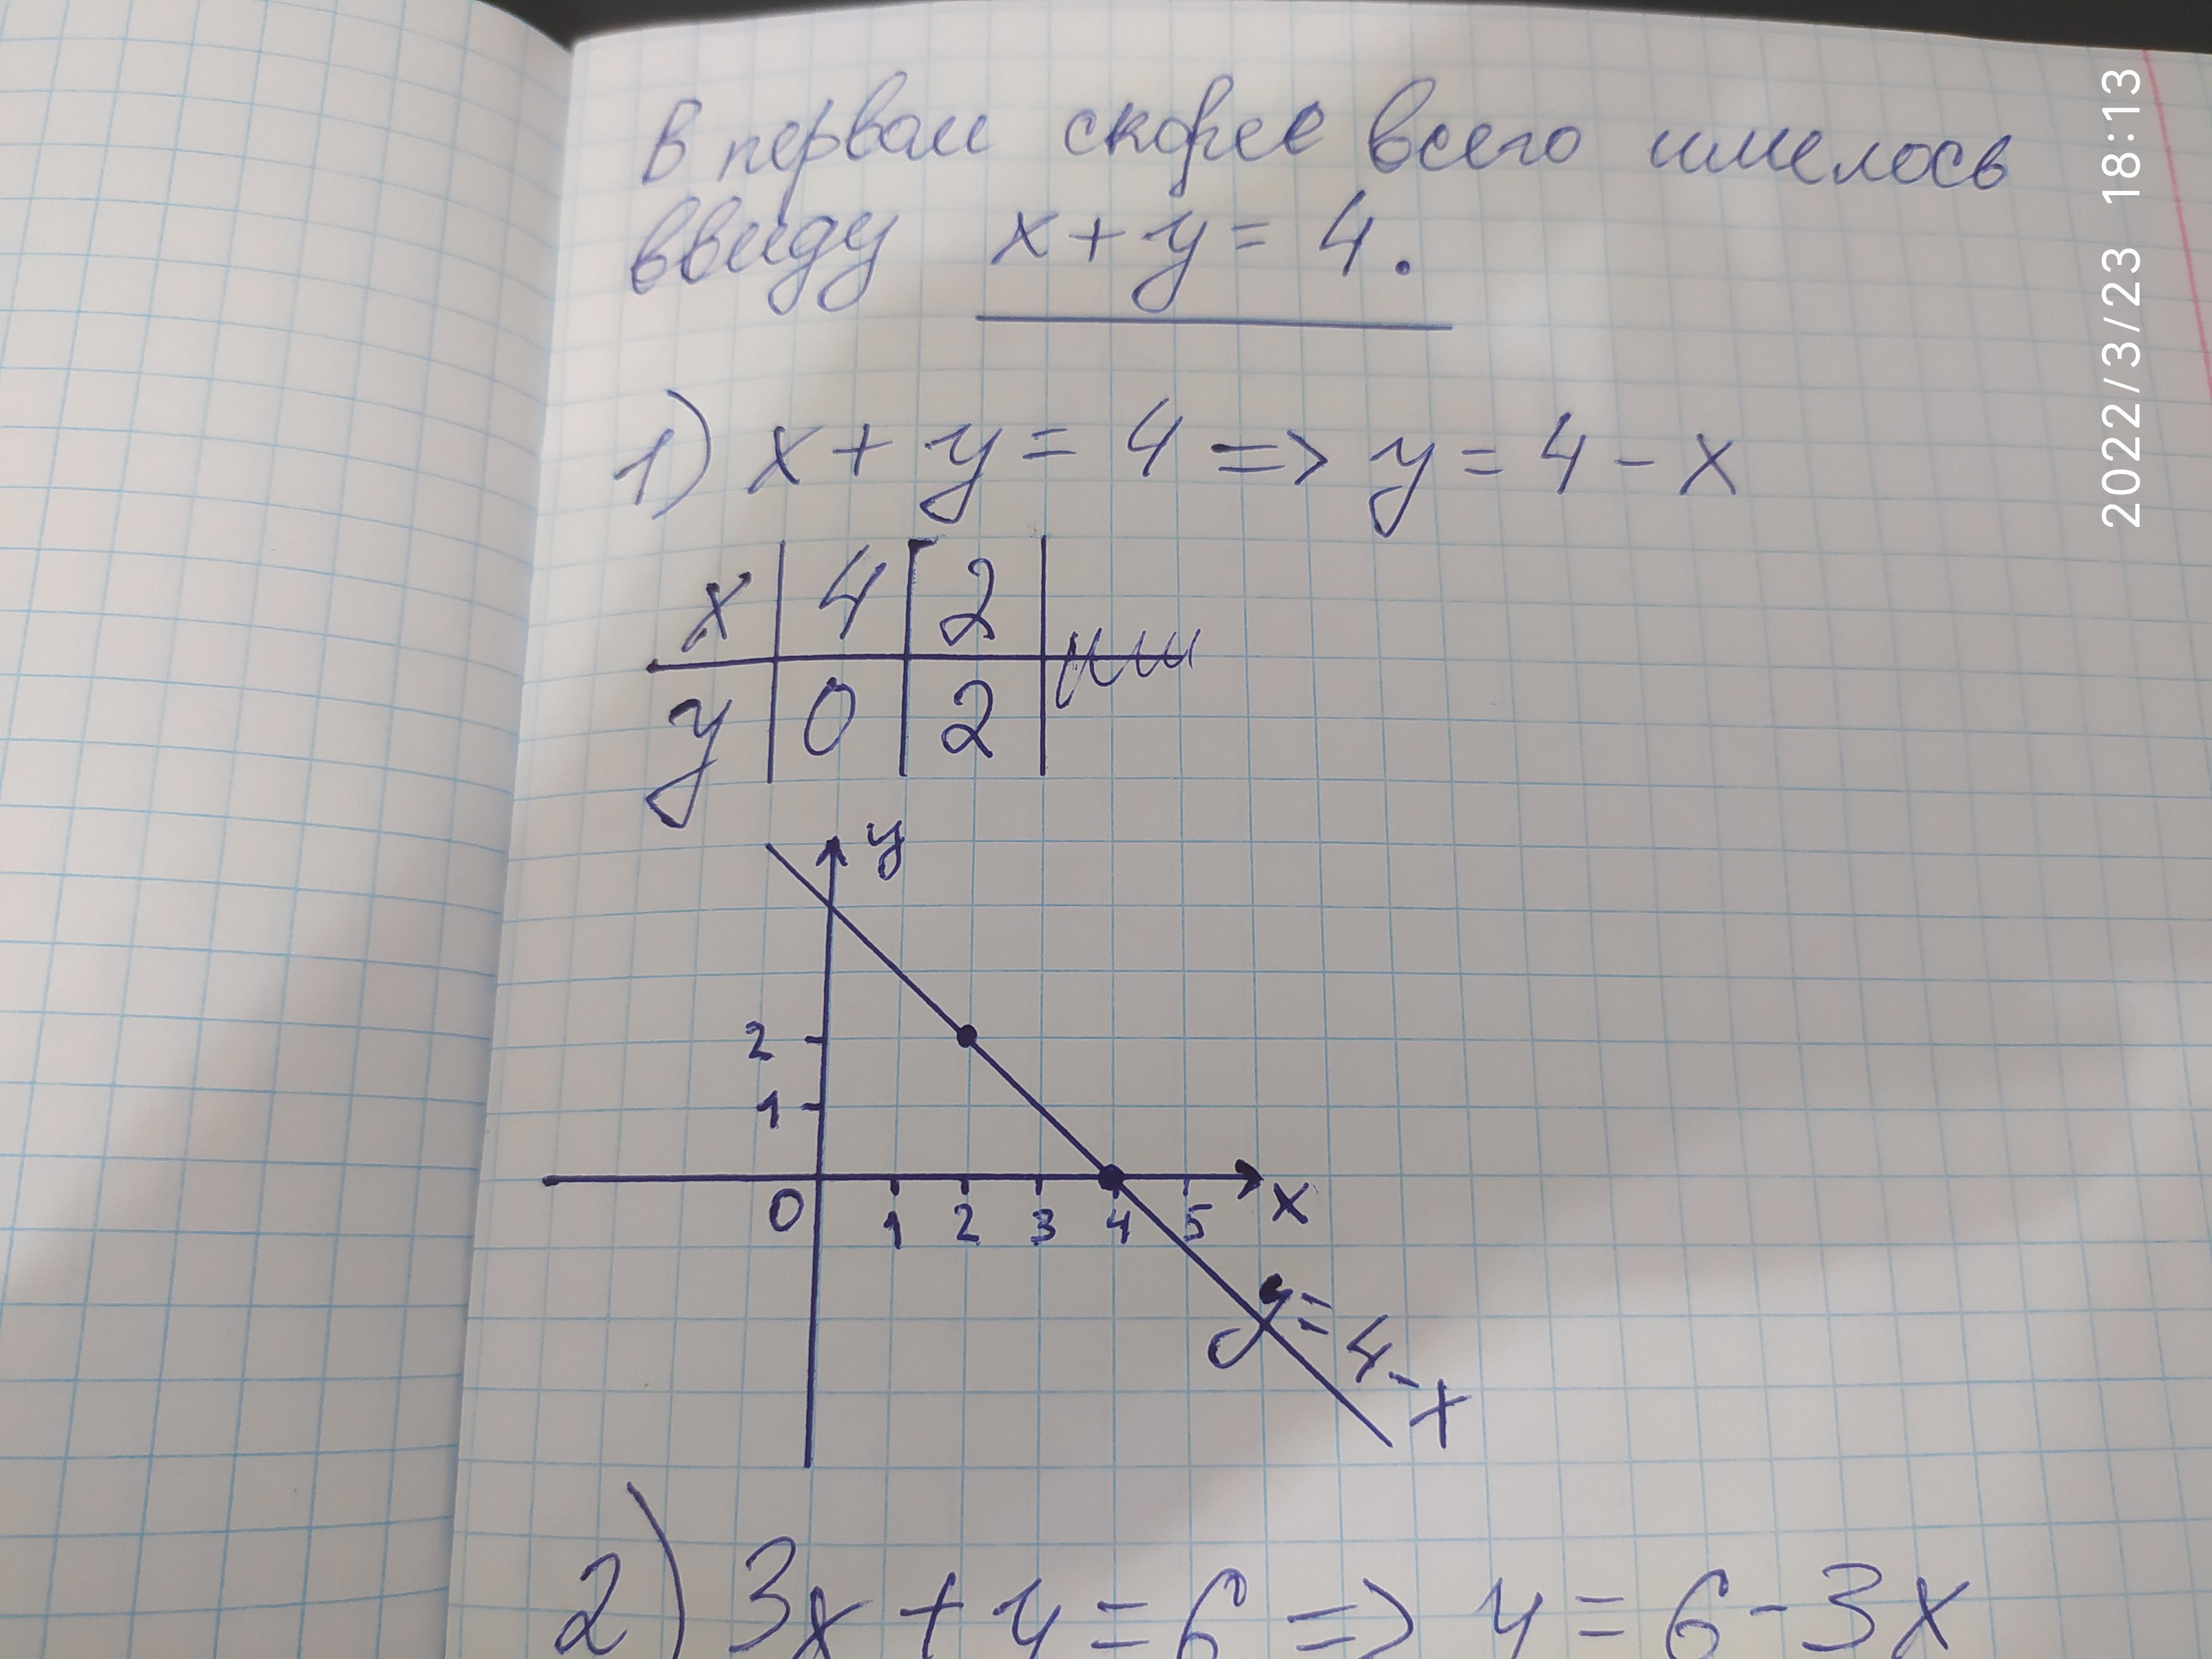 В первом скорее всего имелось
ввиду x + y = 4.
1) x + y = 4 => y = 4 - x
x | 4 | 2 |
y | 0 | 2 |
y
2
1
0 1 2 3 4 5 x
y = 4 - x
2) 3x + y = 6 => y = 6 - 3x
2022/3/23 18:13